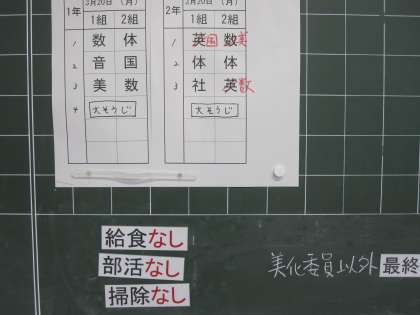 1年 3月20日(月) 2年 3月20日(月)
1組 2組 1組 2組
1 数 体 1 英 国 数 美
2 音 国 2 体 体
3 美 数 3 社 英 数
4 大そうじ 大そうじ
給食なし
部活なし
掃除なし
美化委員以外 最終